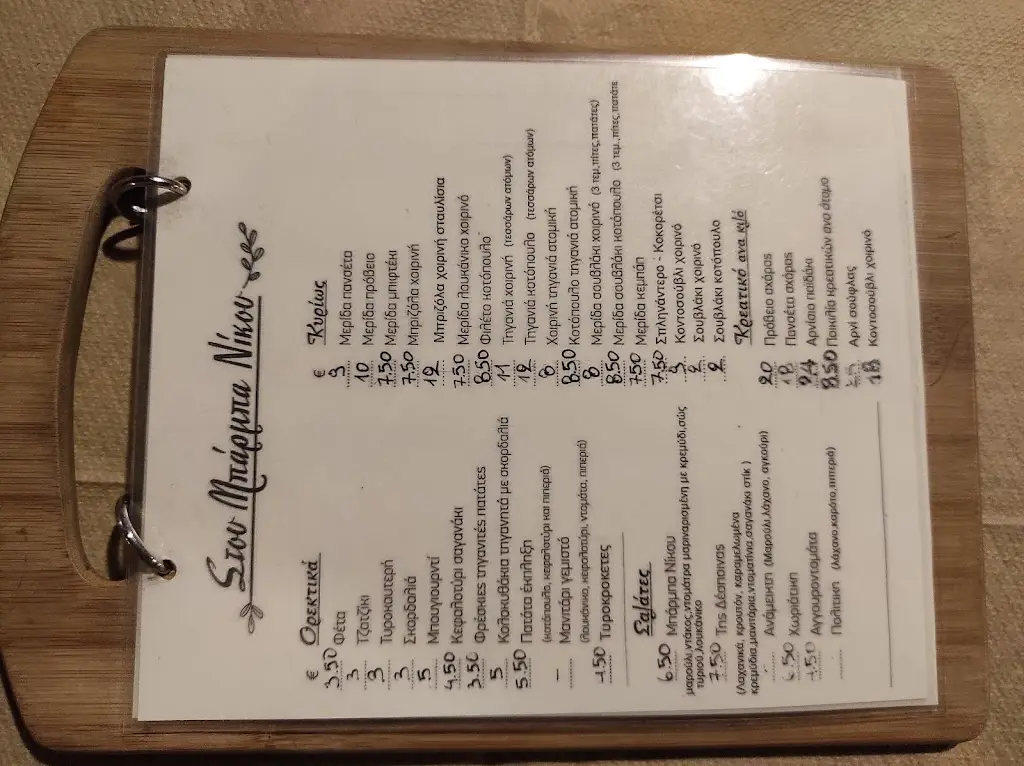 Στου Μπάρμπα Νίκου
€ Ορεκτικά
3.50 Φέτα
3 Τζατζίκι
3 Τυροκαυτερή
3 Σκορδαλιά
5 Μπουγιουρντί
4.50 Κεφαλοτύρι σαγανάκι
3.50 Φρέσκιες τηγανιτές πατάτες
5 Κολοκυθάκια τηγανητά με σκορδαλιά
5.50 Πατάτα έκπληξη
(κοτόπουλο, κεφαλοτύρι και πιπεριά)
Μανιτάρι γεμιστό
(λουκάνικο, κεφαλοτύρι, ντομάτα, πιπεριά)
4.50 Τυροκροκετες
Σαλάτες
6.50 Μπάρμπα Νίκου
μαρούλι,ντάκος,ντομάτρα μαριναρισμένη με κρεμύδι,σώς
τυριού,λουκάνικο
7.50 Της Δέσποινας
(Λαχανικά, κρουτόν, καραμελωμένα
κρεμύδια,μανιτάρια,ντοματίνια,σαγανάκι στίκ )
Ανάμεικτη (Μαρούλι,λάχανο, αγκούρι)
6.50 Χωριάτικη
4.50 Αγγουροντομάτα
Πολίτικη (λάχανο,καρότο,πιπεριά)
€ Κυρίως
9 Μερίδα πανσέτα
10 Μερίδα πρόβειο
7.50 Μερίδα μπιφτέκι
7.50 Μπριζόλα χοιρινή
12 Μπριζόλα χοιρινή σταυλίσια
7.50 Μερίδα λουκάνικο χοιρινό
8.50 Φιλέτο κοτόπουλο
11 Τηγανιά χοιρινή (τεσσάρων ατόμων)
12 Τηγανιά κοτόπουλο (τεσσάρων ατόμων)
8 Χοιρινή τηγανιά ατομική
8.50 Κοτόπουλο τηγανιά ατομική
8 Μερίδα σουβλάκι χοιρινό (3 τεμ,πίτες,πατάτες)
8.50 Μερίδα σουβλάκι κοτόπουλο (3 τεμ,πίτες,πατάτε
7.50 Μερίδα κεμπάπ
7.50 Σπληνάντερο - Κοκορέτσι
9 Κοντοσουβλι χοιρινό
2 Σουβλάκι χοιρινό
2 Σουβλάκι κοτόπουλο
Κρεατικό ανα κιλό
20 Πρόβειο σχάρας
18 Πανσέτα σχάρας
24 Αρνίσια παϊδάκι
8.50 Ποικιλία κρεατικών ανα άτομο
Αρνί σούφλας
18 Κοντοσούβλι χοιρινό